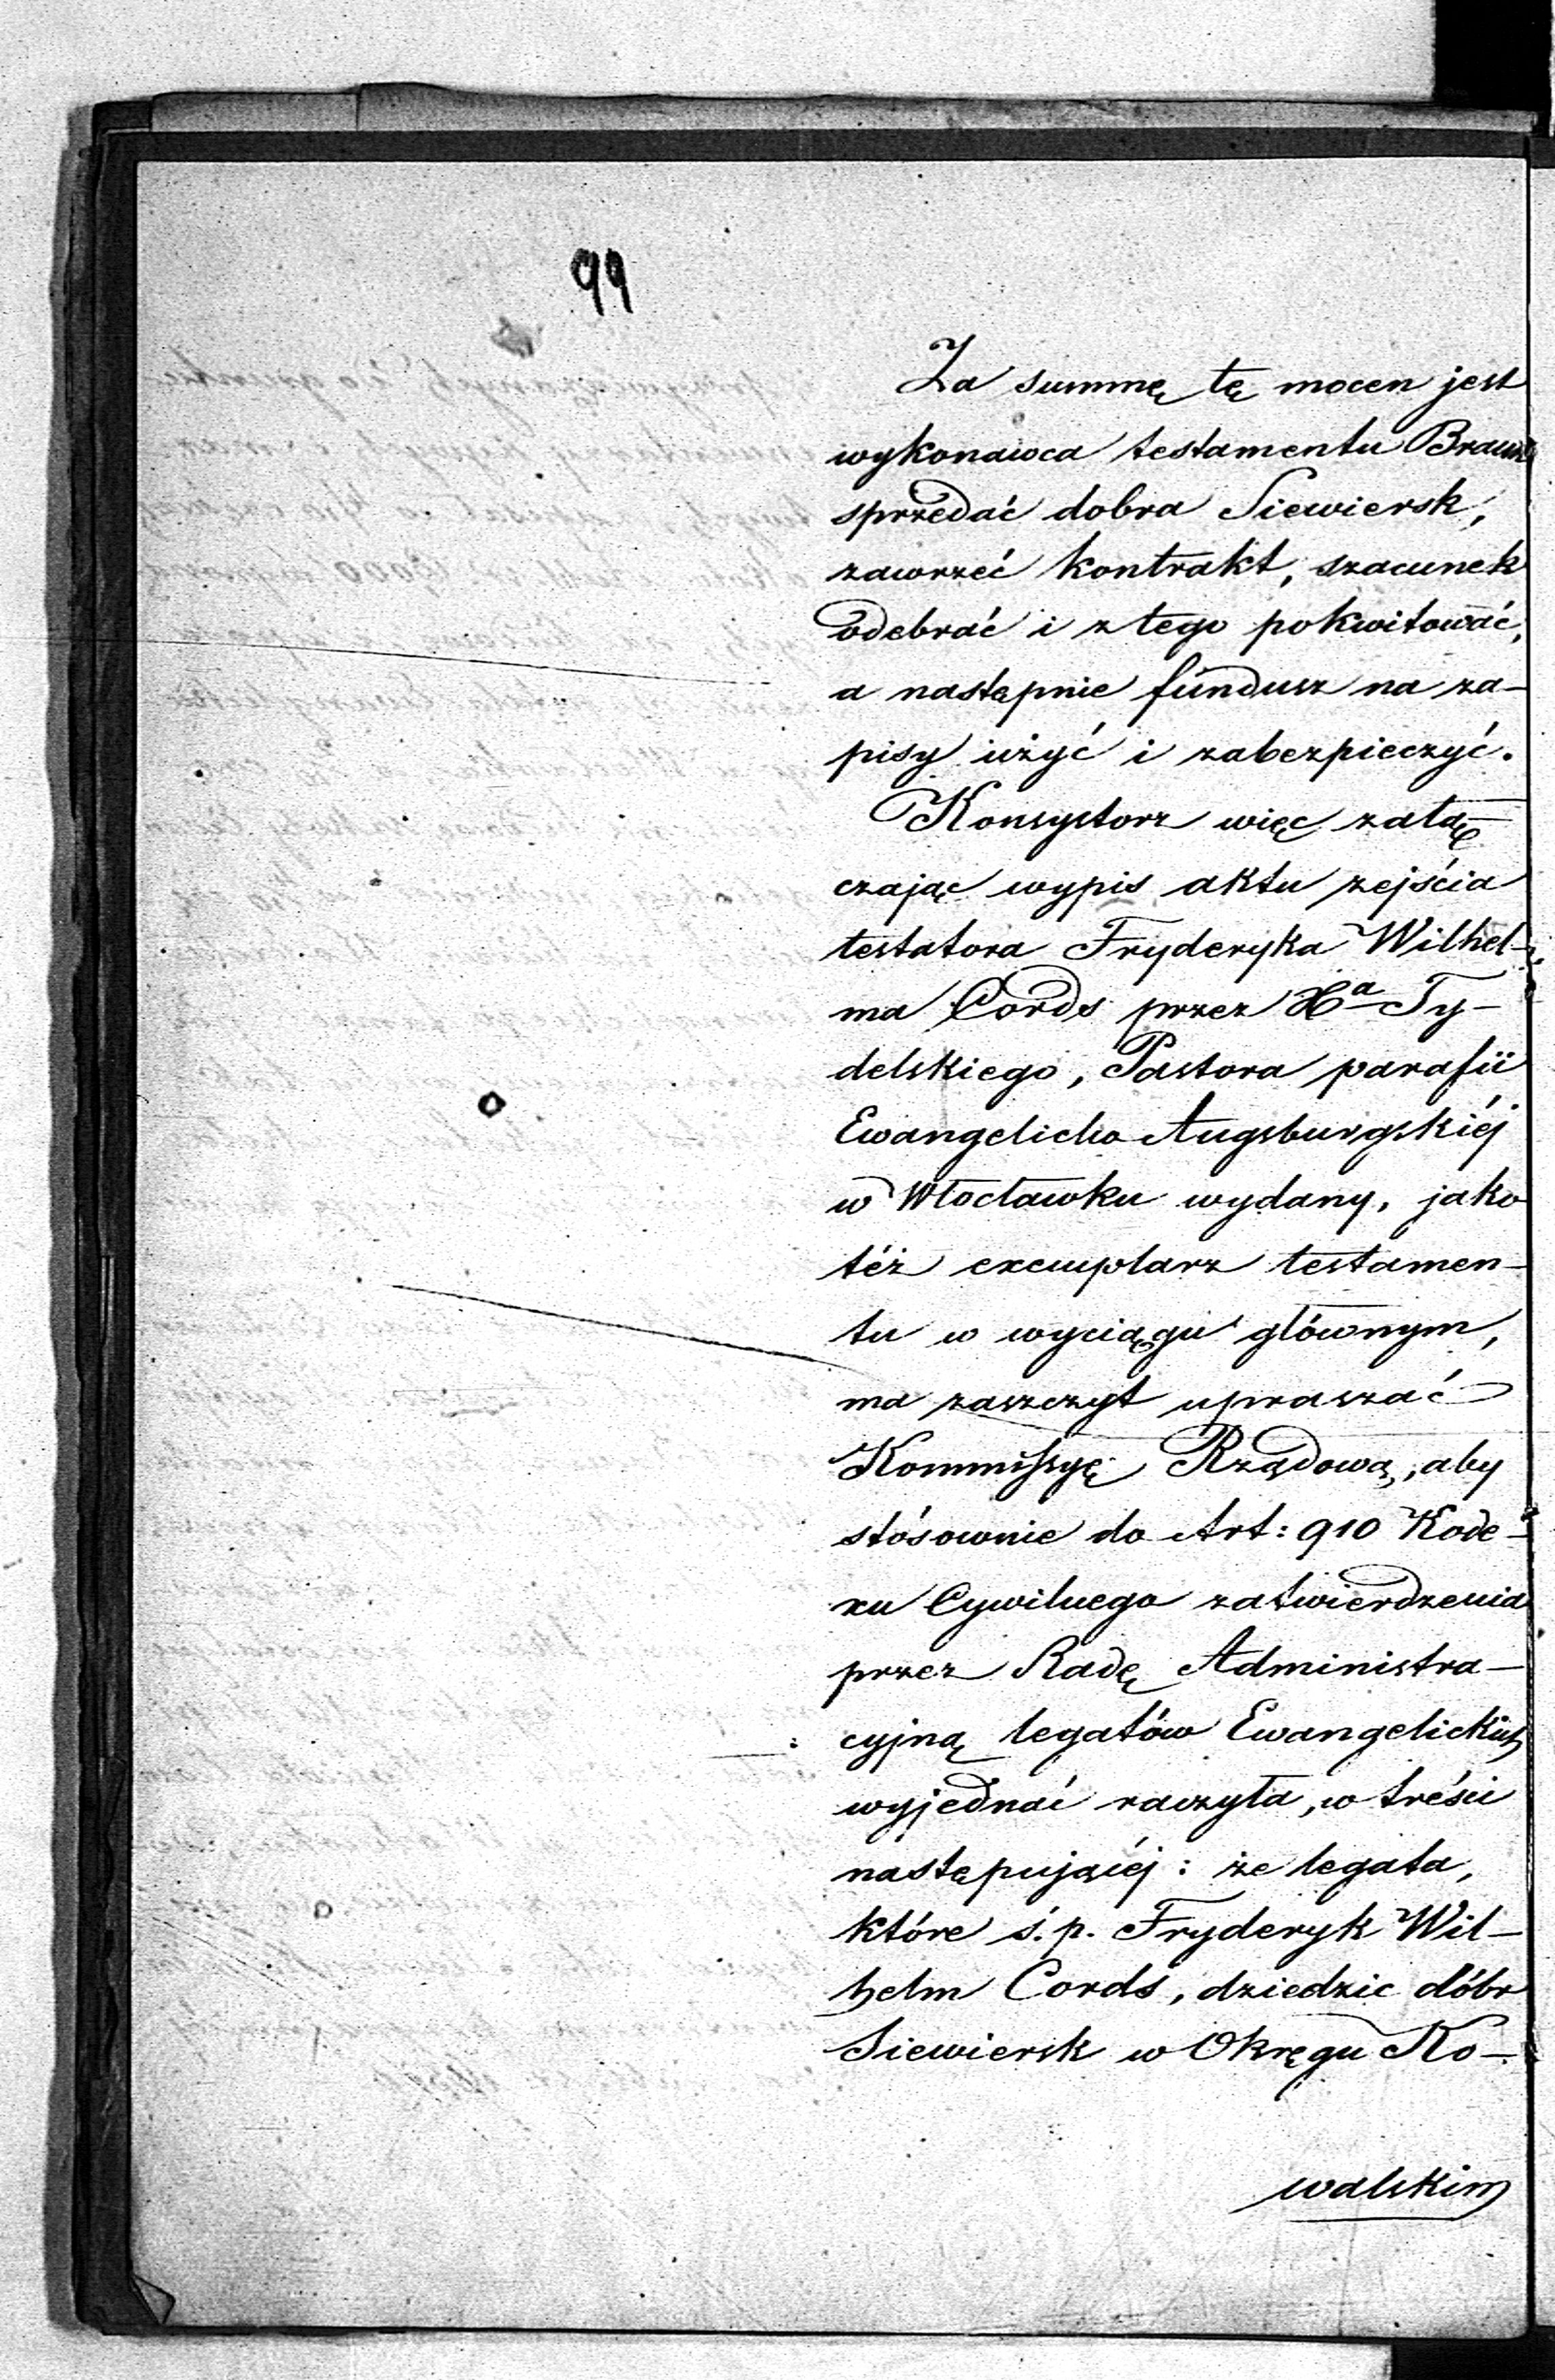 99
Za summę tę mocen jest
wykonawca testamentu Braun
sprzedać dobra Siewiersk,
zawrzeć kontrakt, szacunek
odebrać i z tego pokwitować,
a następnie fundusz na za-
pisy użyć i zabezpieczyć.
Konsystorz więc załą-
czając wypis aktu zejścia
testatora Fryderyka Wilhel-
ma Cords przez Xa Ty-
delskiego, Pastora parafii
Ewangelicko Augsburgskiéj
w Włocławku wydany, jako
téż exemplarz testamen-
tu w wyciągu głównym,
ma zaszczyt upraszać
Kommissyę Rządową, aby
stósownie do Art: 910 Kode-
xu Cywilnego zatwierdzenia
przez Radę Administra-
cyjną legatów Ewangelickich
wyjednać raczyła, w treści
następującéj: że legata,
które ś. p. Fryderyk Wil-
helm Cords, dziedzic dóbr
Siewiersk w Okręgu Ko-
walskim